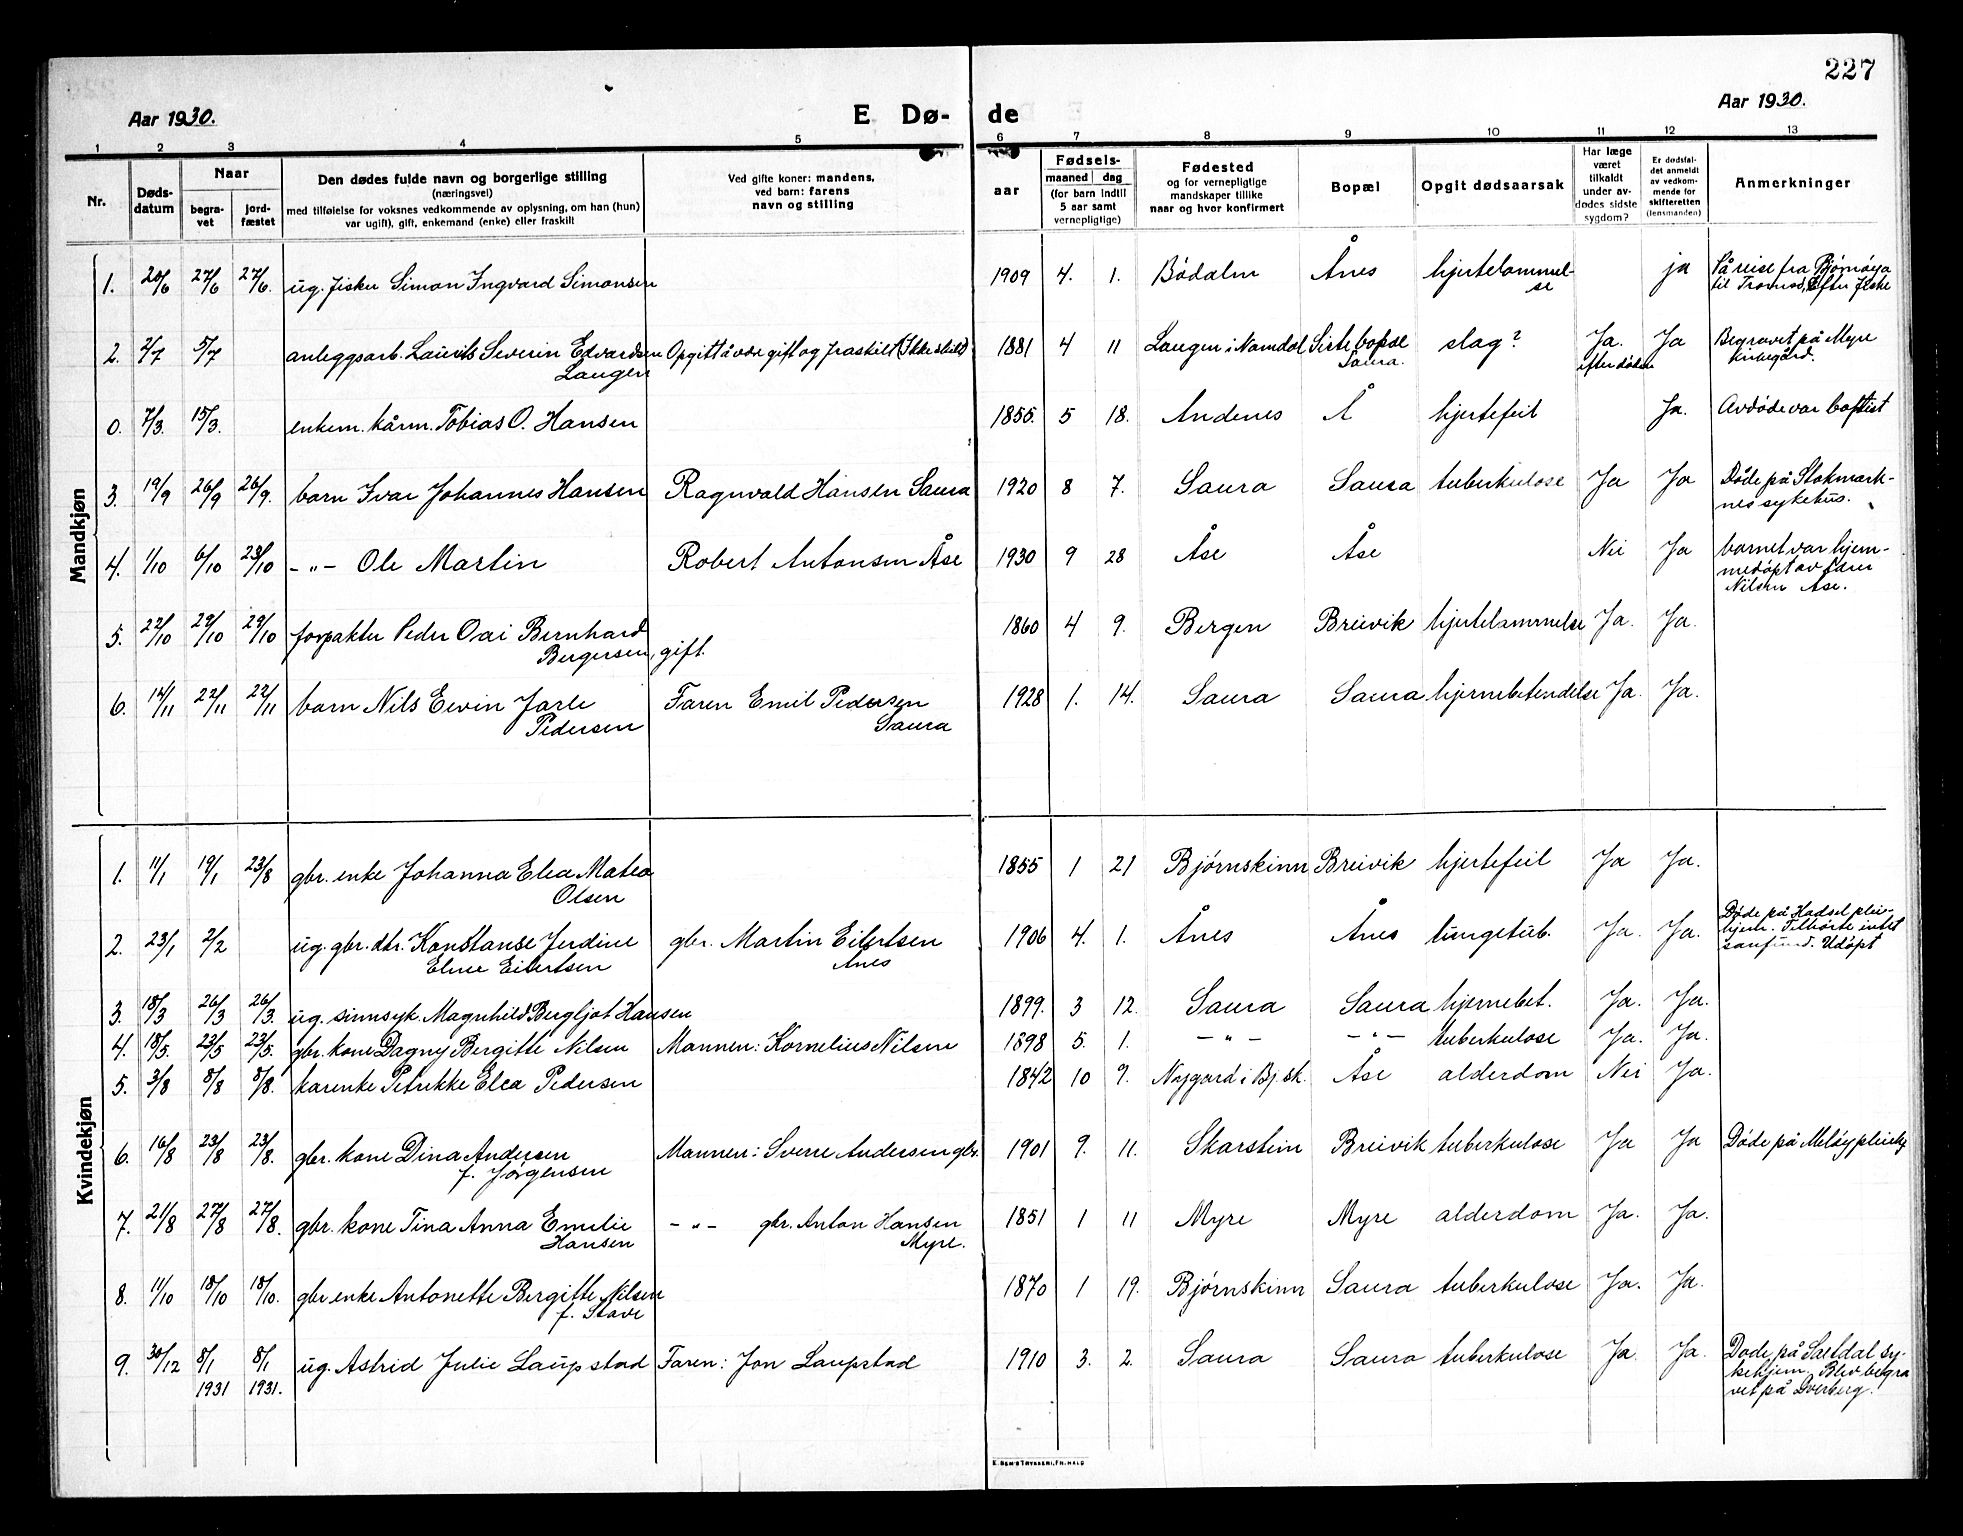 227
Aar 1930.
E Dø-
de
Aar 1930.
1 2 3 4 5 6 7 8 9 10 11 12 13
Nr.
Døds-
datum
Naar
begra-
vet
jord-
fæstet
Den dødes fulde navn og borgerlige stilling
(næringsvei)
med tilføielse for voksnes vedkommende av oplysning, om han (hun)
var ugift), gift, enkemand (enke) eller fraskilt
Ved gifte koner: mandens,
ved barn: farens
navn og stilling
aar
Fødsels-
maaned dag
(for barn indtil
5 aar samt
vernepligtige)
Fødested
og for vernepligtige
mandskaper tillike
naar og hvor konfirmert
Bopæl
Opgit dødsaarsak
Har læge
været
tilkaldt
under av-
dødes sidste
sygdom?
Er dødsfal-
det anmeldt
av vedkom-
mende for
skifteretten
(lensmanden)
Anmerkninger
Mandkjøn
1. 20/6 27/6 27/6. ug. fisker Simon Ingvard Simonsen 1909 4. 1. Bödalm Ånes hjertelammel- ja På reise fra Bjørnøya
se til Tromsø, Efter fiske
2. 2/7 5/7 anleggsarb. Laurits Severin Edvardsen Opgitt å være gift og fraskilt (Ikke skild) 1881 4 11 Laugen i Namdal Siste bopæl slag? Ja. Ja Begravet på Myre
Laugen Saura. efter døden kirkegård.
0. 7/3. 15/3. enkem. kårm. Tobias O. Hansen 1855. 5 18. Andenes Å hjertefeil Ja. Avdøde var baptist
3. 19/9 26/9 26/9. barn Ivar Johannes Hansen Ragnvald Hansen Saura 1920 8 7. Saura Saura tuberkulose Ja Ja Døde på Stokmark-
nes sykehus.
4. 1/10 6/10 23/10 -"- Ole Martin Robert Antonsen Åse 1930 9 28 Åse Åse Nei Ja barnet var hjem-
medøpt av
Nilsen Åse.
5. 22/10 29/10 29/10 forpakter Peder Oai Bernhard 1860 4 9. Bergen Breivik hjertelammelse Ja. Ja.
Bergersen, gift.
6. 14/11 22/11 22/11 barn Nils Eivin Jarle Faren Emil Pedersen 1928 1. 14. Saura Saura hjernebetendelse Ja. Ja.
Pedersen Saura
Kvindekjøn
1. 11/1 19/1 23/8 gbr. enke Johanna Elea Matea 1855 1 21 Bjørnskinn Breivik hjertefeil Ja Ja.
Olsen
2. 23/1 2/2 ug. gbr. dtr. Konstanse Jerdine gbr. Martin Eilertsen 1906 4. 1. Ånes Ånes lungetub. Ja. Ja. Døde på Hadsel plei-
Eline Eilertsen Ånes hjem. Tilhørte intet
samfund. Udöpt
3. 18/3 26/3 26/3. ug. sinnsyk Magnhild Bergljot Hansen 1899. 3 12. Saura Saura hjernebet. Ja. Ja.
4. 18/5. 23/5 23/5. gbr. kone Dagny Bergitte Nilsen Mannen: Kornelius Nilsen 1898 5. 1. -"- -"- tuberkulose Ja. Ja.
5. 3/8 8/8 8/8. kårenke Petrikke Elea Pedersen 1842 10 9. Nygard i Bj.sk. Åse alderdom Nei Ja.
6. 16/8 23/8 23/8. gbr. kone Dina Andersen Mannen: Sverre Andersen gbr. 1901 9. 11. Skarstein Breivik tuberkulose Ja Ja Døde på Meløy pleiehj
f. Jørgensen
7. 21/8 27/8 27/8. gbr. kone Tina Anna Emelie -"- gbr. Anton Hansen 1851 1 11 Myre Myre alderdom Ja. Ja.
Hansen Myre.
8. 11/10 18/10 18/10. gbr enke Antonette Bergitte Nilsen 1870 1 19. Bjørnskinn Saura tuberkulose Ja. Ja.
f. Stave
9. 30/12 8/1 8/1 ug. Astrid Julie Laupstad Faren: Jon Laupstad 1910 3. 2. Saura Saura tuberkulose Ja. Ja. Døde på Saltdal sy-
1931 1931. kehjem, Blev begra
vet på Dverberg.
E. SEM'S TRYKKERI, FR.HALD